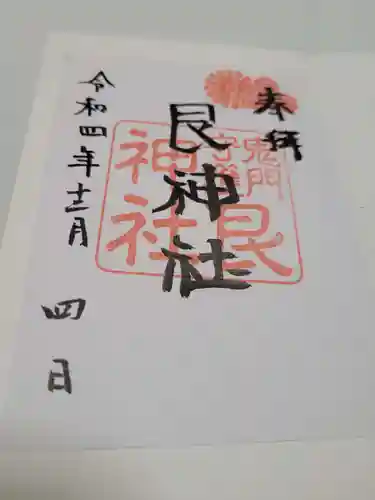 奉拝
鬼門
守護
艮
神社
艮神社
令和四年十二月
四日